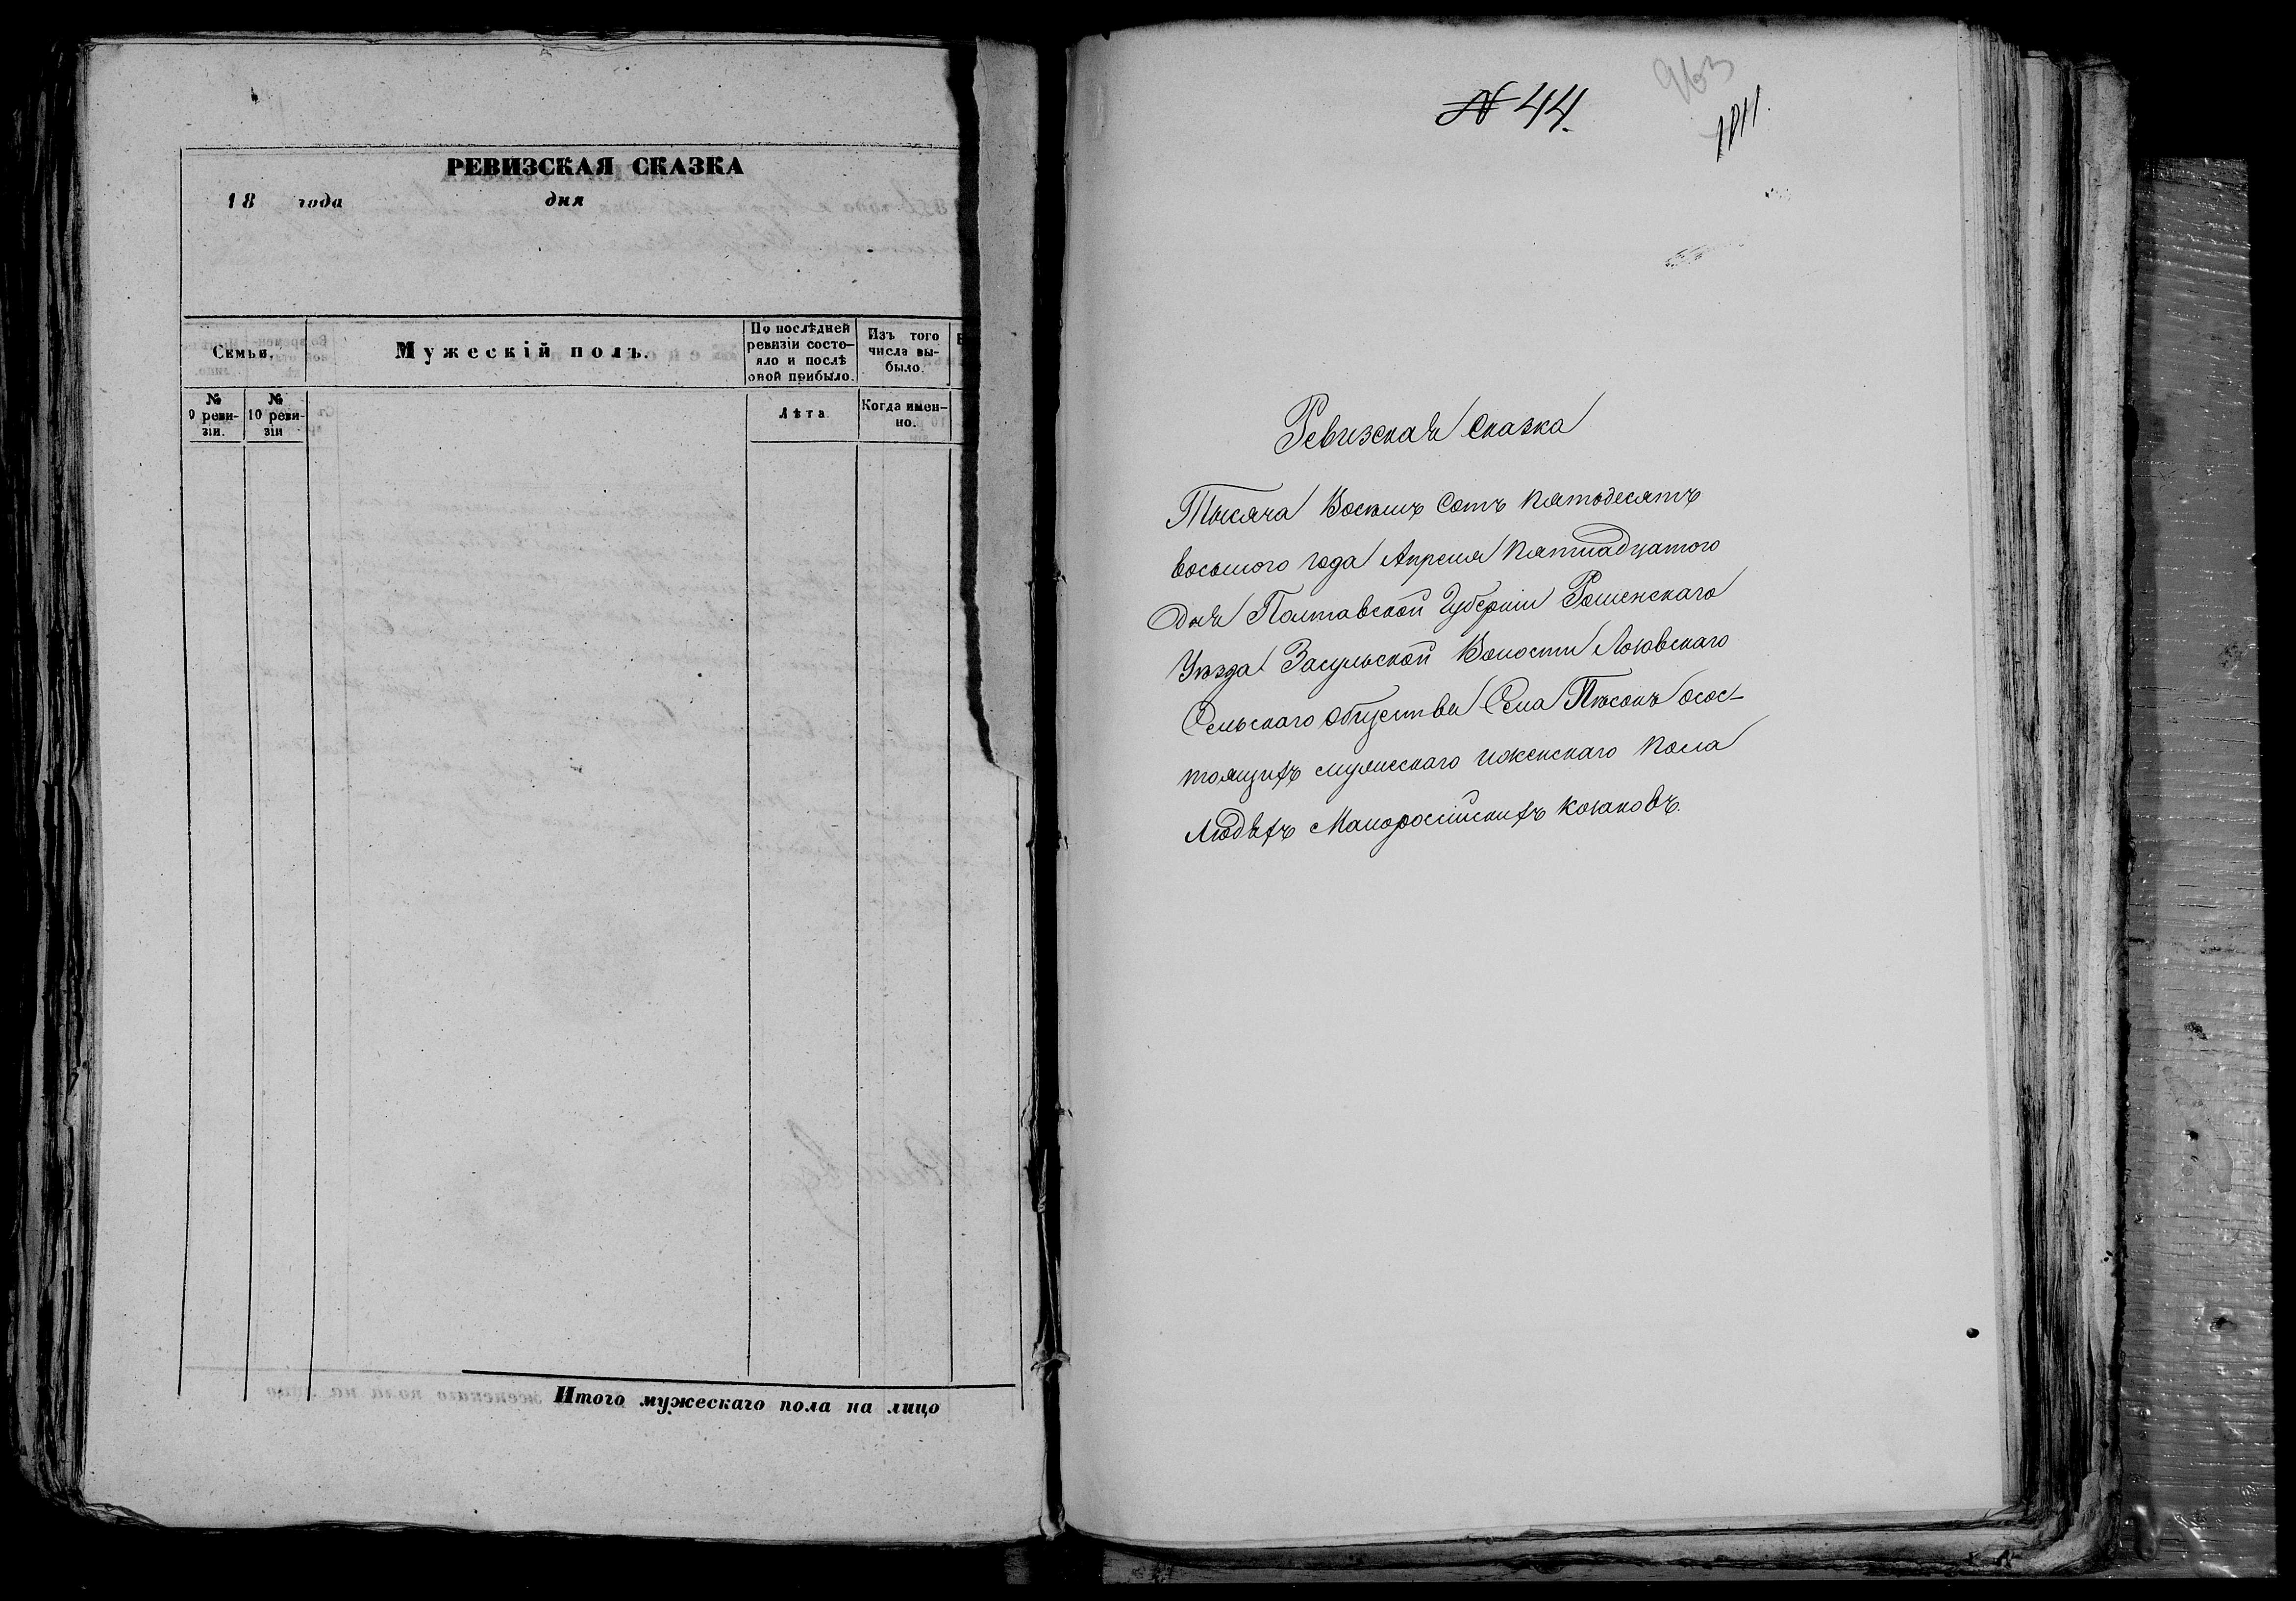 РЕВИЗСКАЯ СКАЗКА
18 года дня
Семьи.
Мужескій полъ.
По послѣдней ревизіи состо-
яло и послѣ
оной прибыло.
Изъ того
числа вы-
было.
№
9 реви-
зіи.
№
10 реви-
зіи
Лѣта
Когда имен-
но.
Итого мужескаго пола на лицо
№ 44.
963
1011.
Ревизская Сказка
Тысяча Восемь Сотъ пятьдесятъ
восьмого года Апреля пятнадцатого
Дня Полтавской Губерніи Роменскаго
Уѣзда Засульской Волости
Сельскаго Общества Села Пѣсокъ осос-
тоящихъ мужескаго иженскаго пола
людѣхъ Малороссійскихъ козаковъ.